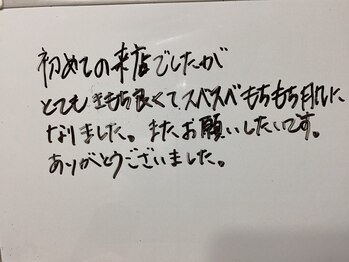 初めての来店でしたが
とてもきもち良くて、スベスベもちもち肌に
なりました。またお願いしたいです。
ありがとうございました。